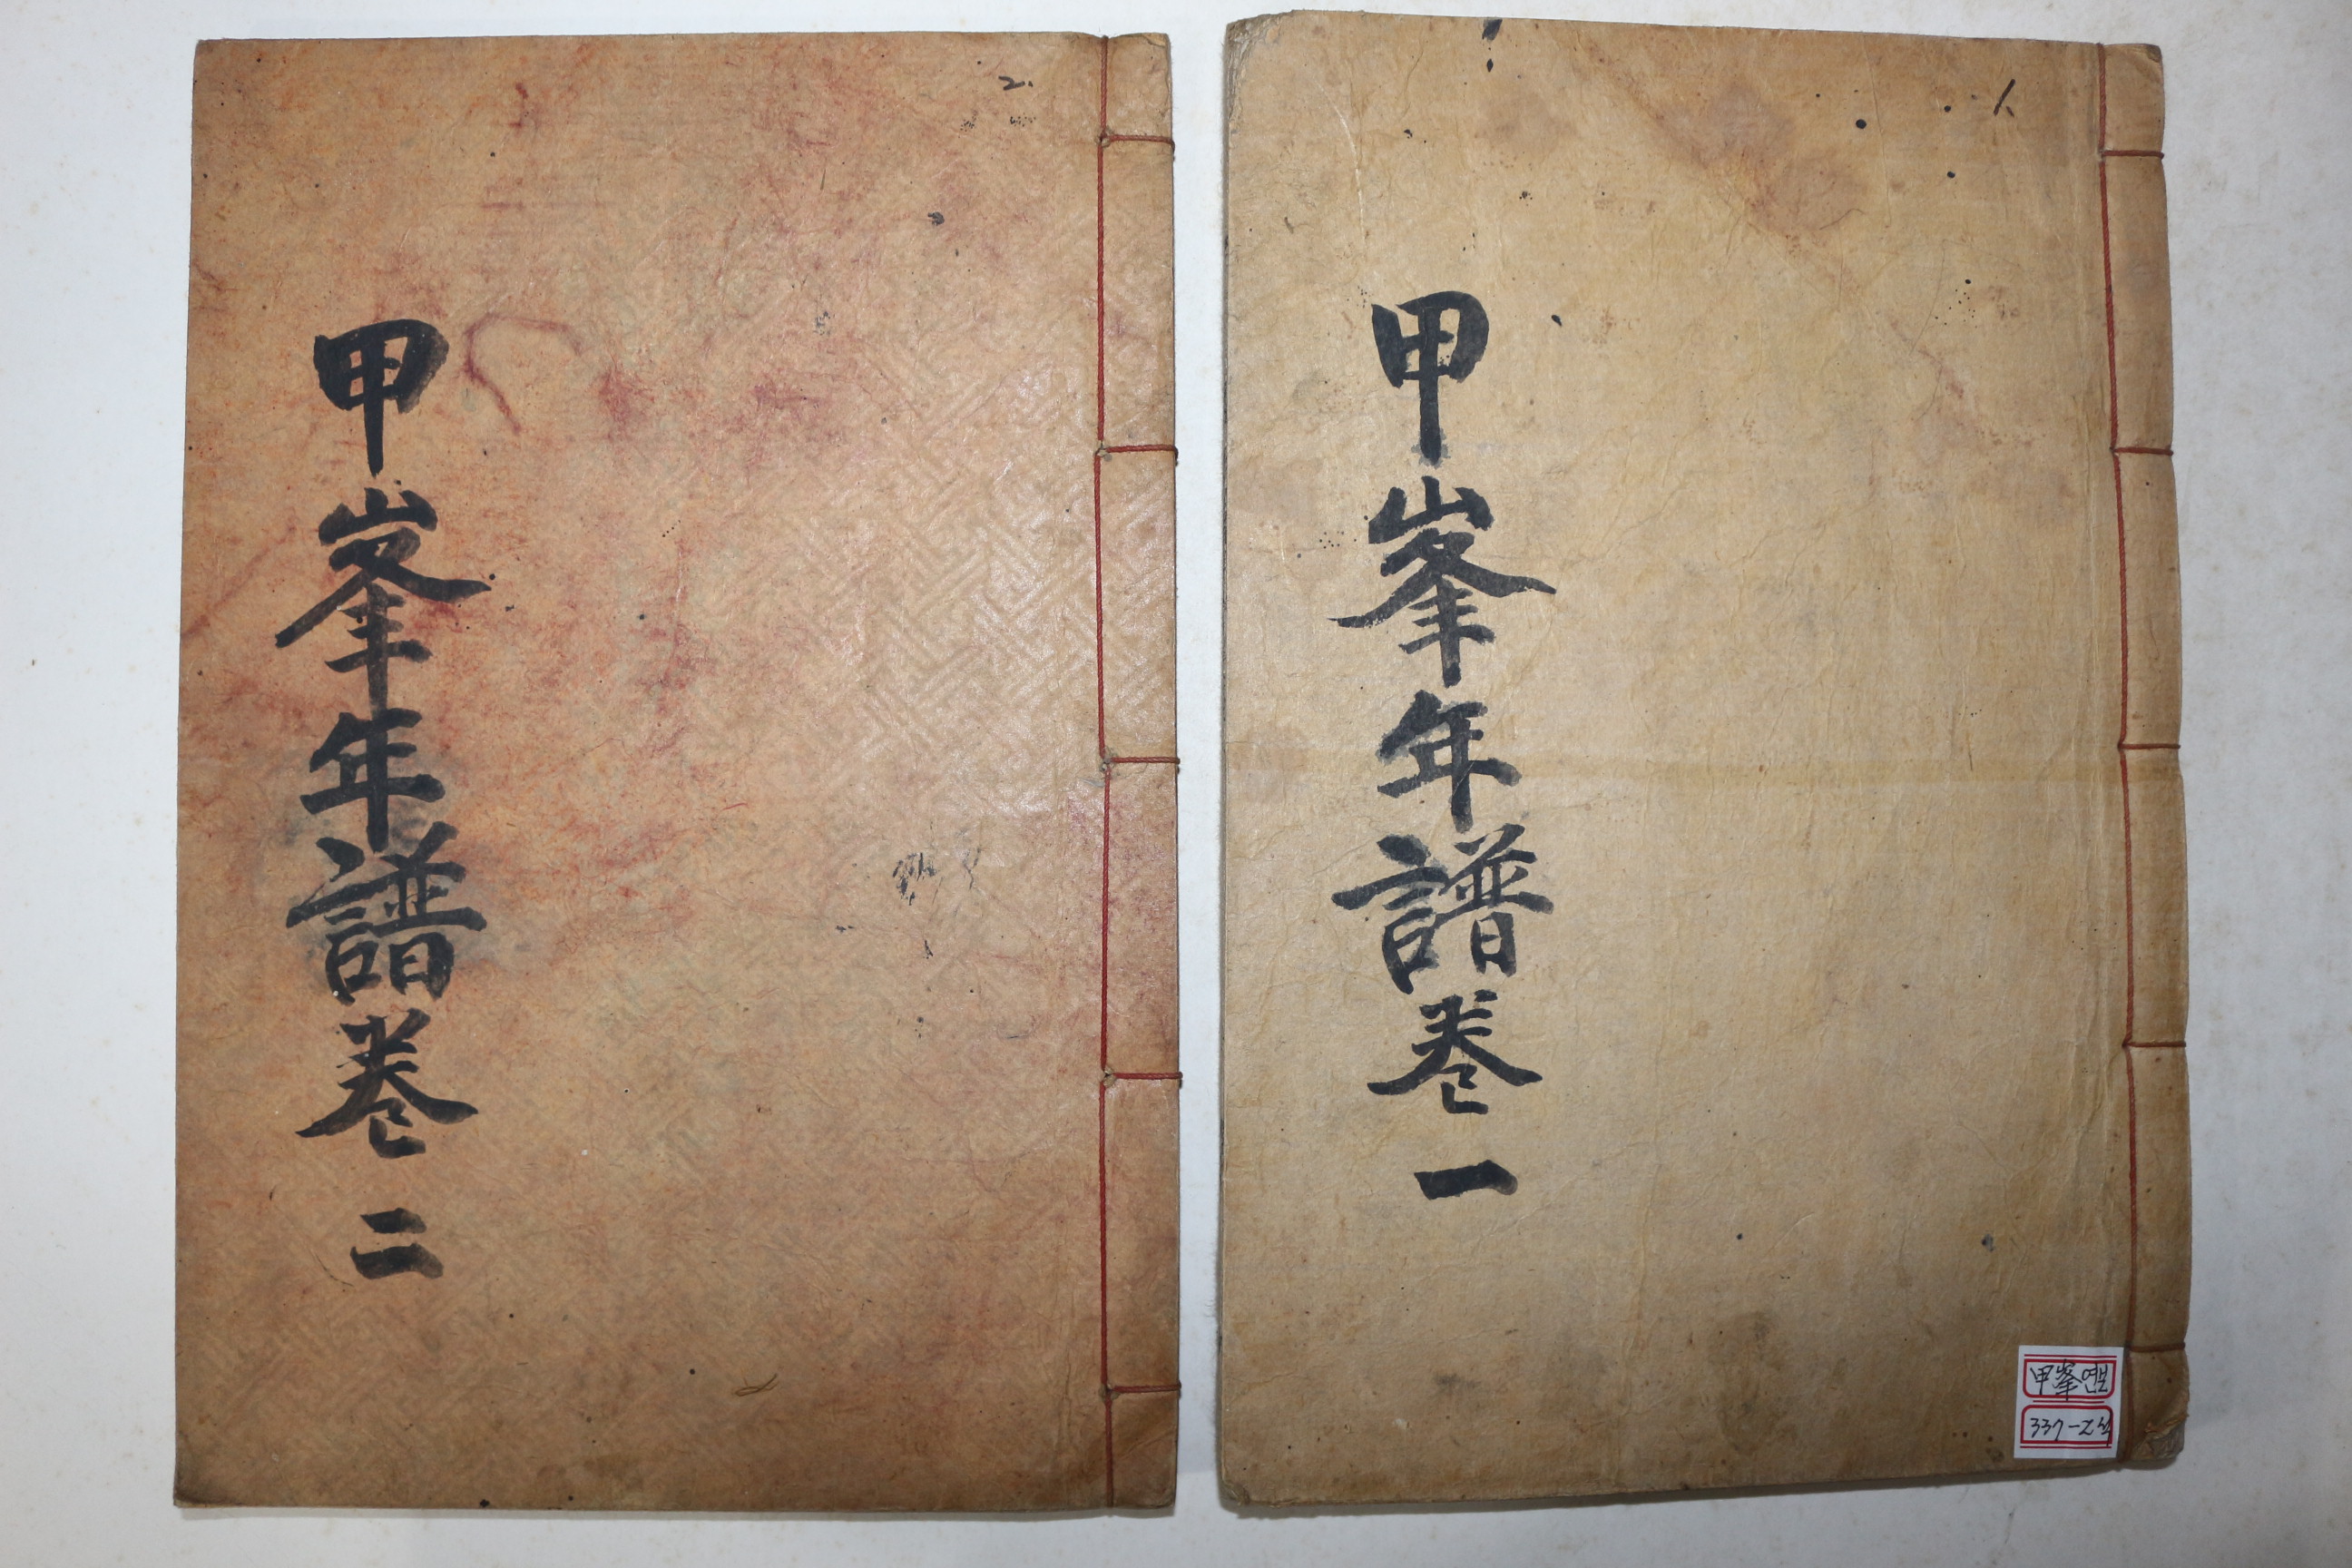 甲峯年譜卷一
1
甲峯연보
337-2책
甲峯年譜卷二
2.